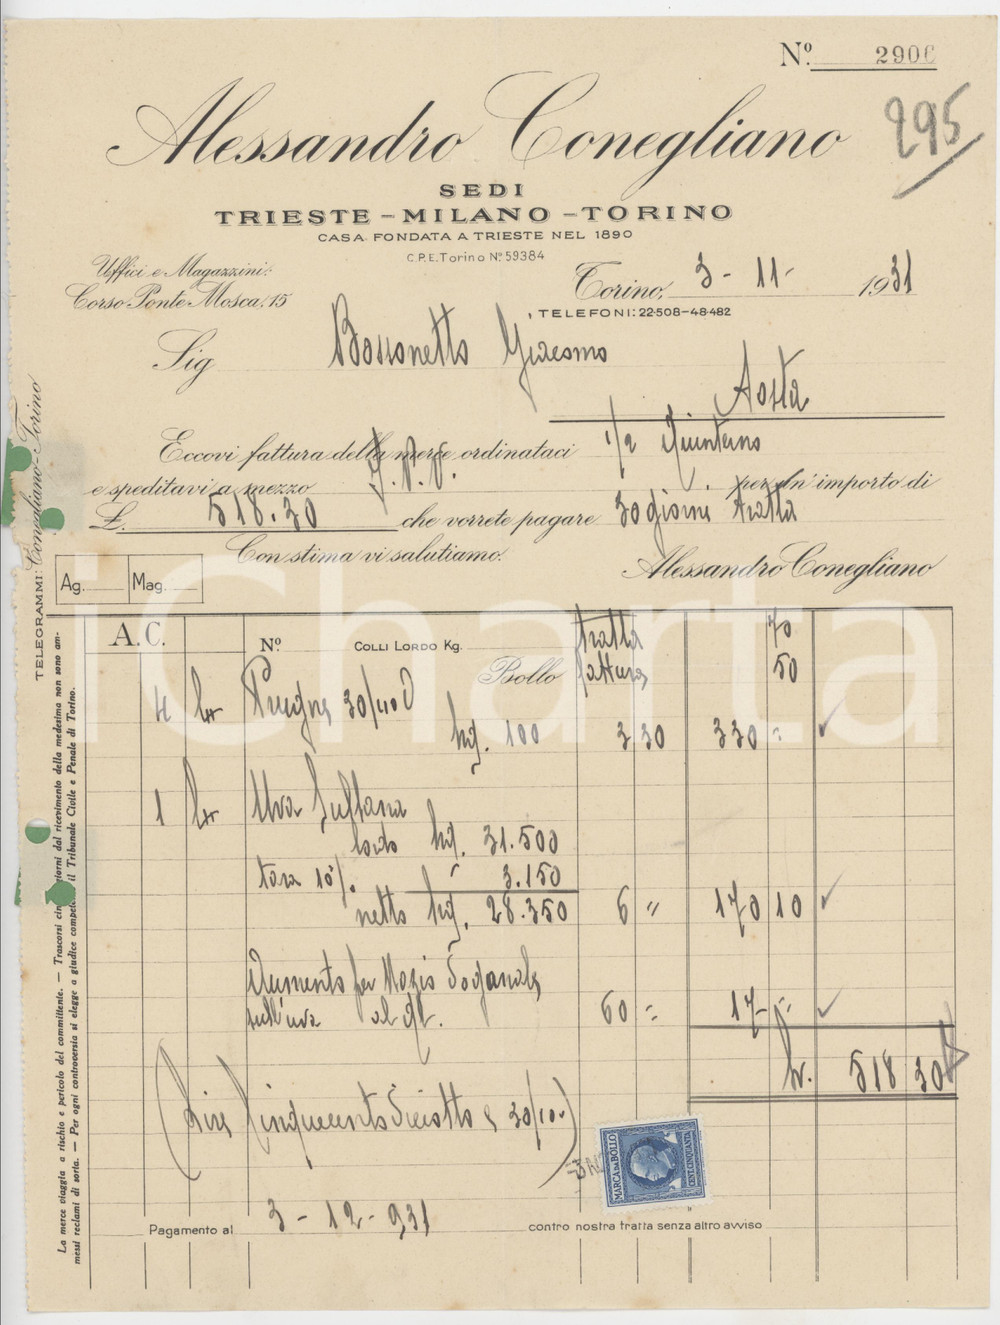 Nº. 2906
295
Alessandro Conegliano
SEDI
TRIESTE - MILANO - TORINO
CASA FONDATA A TRIESTE NEL 1890
C.P.E. Torino Nº 59384
Uffici e Magazzini:
Corso Ponte Mosca, 15
Torino, 3 - 11 - 1931
TELEFONI: 22-508 - 48-482
Sig Bossonetto Giacomo
Aosta
Eccovi fattura della merce ordinataci 1/2 Quinterno
e speditavi a mezzo per un' importo di
£. 518.30 che vorrete pagare 30 giorni tratta
Con stima vi salutiamo.
Alessandro Conegliano
Ag. Mag.
TELEGRAMMI: Conegliano - Torino
A. C. Nº. COLLI LORDO Kg. tratta 70
Bollo fattura 50
4 Prugne 30/40 D
kg. 100 3 30 330 =
1 Uva Sultana
lordo kg. 31.500
tara 10%. 3.150
netto kg. 28.350 6 " 170 10
Aumento per Dazio Doganale
sull'uva al ql. 60 = 17 =
Lr. 518 30
(Lire Cinquecentodiciotto e 30/100)
MARCA DA BOLLO
CENT. CINQUANTA
Pagamento al 3 - 12 - 931 contro nostra tratta senza altro avviso
La merce viaggia a rischio e pericolo del committente. — Trascorsi giorni dal ricevimento della medesima non sono am-
messi reclami di sorta. — Per ogni controversia si elegge a giudice il Tribunale Civile e Penale di Torino.
iCharta